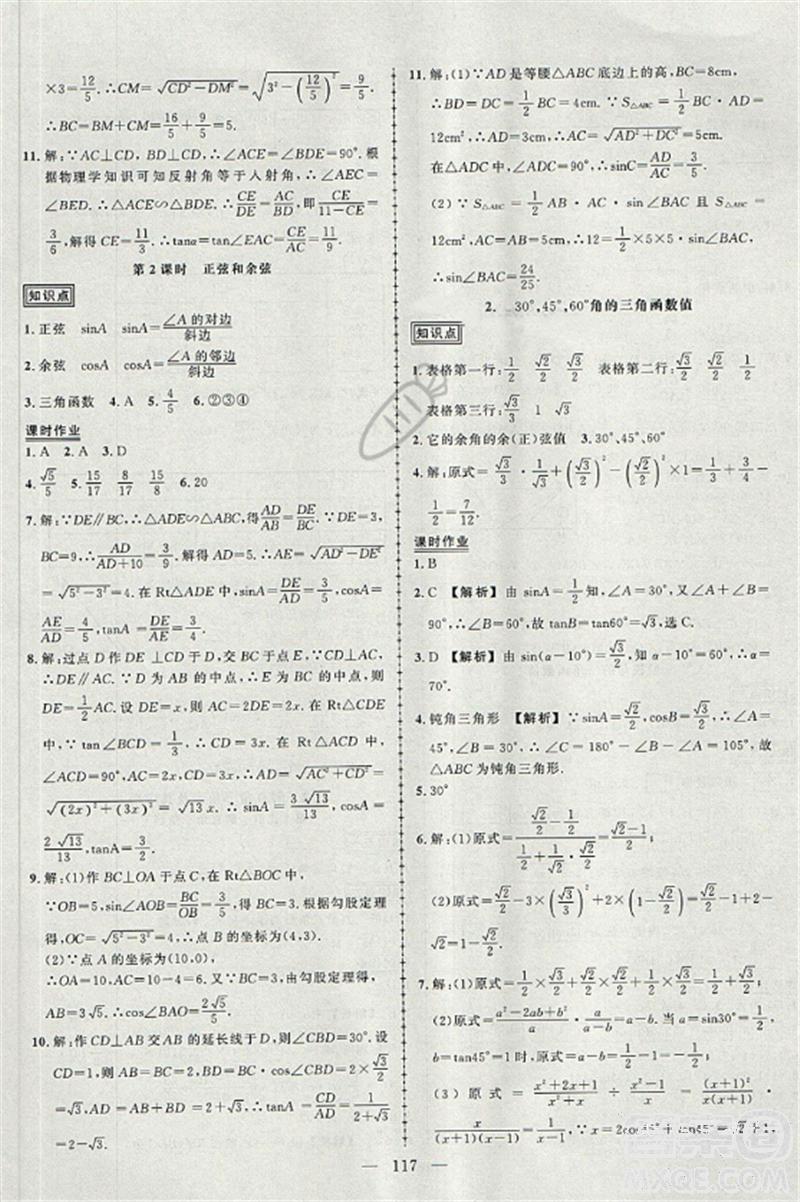 ×3=12/5. ∴CM=√(CD²−DM²)=√(3²−(12/5)²)=9/5.
∴BC=BM+CM=16/5+9/5=5.
11. 解:∵AC⊥CD, BD⊥CD, ∴∠ACE=∠BDE=90°. 根
据物理学知识可知反射角等于入射角, ∴∠AEC=
∠BED. ∴△ACE∽△BDE. ∴CE/DE=AC/BD, 即CE/(11−CE)=
3/6, 解得 CE=11/3. ∴tanα=tan∠EAC=CE/AC=11/9.
第2课时 正弦和余弦
知识点
1. 正弦 sinA sinA=∠A的对边/斜边
2. 余弦 cosA cosA=∠A的邻边/斜边
3. 三角函数 4. A 5. 4/5 6. ②③④
课时作业
1. A 2. A 3. D
4. √5/5 5. 15/17 8/17 15/8 6. 20
7. 解:∵DE∥BC, ∴△ADE∽△ABC, 得AD/AB=DE/BC. ∵DE=3,
BC=9, ∴AD/(AD+10)=3/9. 解得 AD=5. ∴AE=√(AD²−DE²)
=√(5²−3²)=4. 在 Rt△ADE 中, sinA=DE/AD=3/5, cosA=
AE/AD=4/5, tanA=DE/AE=3/4.
8. 解:过点 D 作 DE ⊥CD于 D, 交 BC 于点 E, ∵CD⊥AC,
∴DE∥AC. ∵D 为 AB 的中点, ∴E 为 BC 的中点,
∴DE=1/2AC. 设 DE=x, 则 AC=2x. 在 Rt△CDE
中, ∵tan∠BCD=1/3, ∴CD=3x. 在 Rt△ACD 中,
∠ACD=90°, AC=2x, CD=3x, ∴AD=√(AC²+CD²)=
√((2x)²+(3x)²)=√13x. ∴sinA=3√13/13, cosA=
2√13/13, tanA=3/2.
9. 解:(1)作 BC⊥OA 于点 C, 在 Rt△BOC 中,
∵OB=5, sin∠AOB=BC/OB=3/5, 得 BC=3. 由勾股定理
得, OC=√(5²−3²)=4, ∴点 B 的坐标为(4,3).
(2)∵点 A 的坐标为(10,0).
∴OA=10, AC=10−4=6. 由勾股定理得,
AB=3√5. ∴cos∠BAO=2√5/5.
10. 解:作 CD⊥AB 交 AB 的延长线于 D, 则∠CBD=30°. 设
CD=1, BD=√3, AB=2, AD=2+√3, tanA=CD/AD=1/(2+√3)
=2−√3.
11. 解:(1)∵AD 是等腰△ABC 底边上的高, BC=8cm,
∴BD=DC=1/2BC=4cm. ∵S△ABC=1/2BC·AD=
12cm², ∴AD=3cm, ∴AC=√(AD²+DC²)=5cm.
在△ADC 中, ∴sinC=AD/AC=3/5.
(2)∵S△ABC=1/2 AB·AC·sin∠BAC 且 S△ABC=
12cm², AB=AC=5cm, ∴12=1/2×5×5×sin∠BAC,
∴sin∠BAC=24/25.
2. 30°,45°,60°角的三角函数值
知识点
1. 表格第一行:1/2 √2/2 √3/2 表格第二行:√3/2 √2/2 1/2
表格第三行:√3/3 1 √3
2. 它的余角的余(正)弦值 3. 30°、45°、60°
4. 解:原式=√3/3·√3/2+(√3/2)²−(√2/2)²×1=1/3+3/4−
1/2=7/12.
课时作业
1. B
2. C 【解析】由 sinA=1/2知, ∠A=30°, 又∠A+∠B=
90°, ∴∠B=60°, 故 tanB=tan60°=√3, 选 C.
3. D 【解析】由 sin(α−10°)=√3/2知 α−10°=60°, ∴α=
70°.
4. 钝角三角形 【解析】∵sinA=√2/2, cosB=√3/2, ∴∠A=
45°, ∠B=30°, ∴∠C=180°−∠A−∠B=105°. 故
△ABC 为钝角三角形.
5. 30°
6. 解:(1)原式=(√2/2−1/2)/(1/2+1/2·√2)=(√2−1)/(√2+1)=3−2√2.
(2)原式=√2/2−3×(√3/3)²+2×1/2−1=√2/2−1+2−
1/2−1=√2/2−1/2.
7. 解:(1)原式=1/2×√2/2+√3/2×√2/2=√2/4+√6/4.
(2)原式=(a²−2ab+b²)/a·a/(a−b)=a−b, 当 a=sin30°=1/2,
b=tan45°=1时, 原式=a−b=1/2−1=−1/2.
(3)原式=(x²+2x+1)/x÷(x²−1)/x=(x+1)²/x·
x/((x+1)(x−1))=(x+1)/(x−1),
117
MXQE.COM